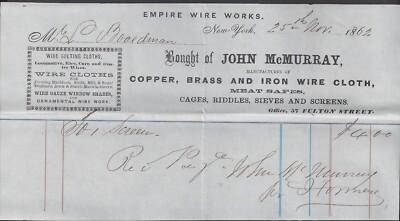 EMPIRE WIRE WORKS.
New-York, 25th Nov. 1862
Mr Boardman
Bought of JOHN McMURRAY,
WIRE BOLTING CLOTHS,
MANUFACTURER OF
COPPER, BRASS AND IRON WIRE CLOTH,
WIRE CLOTHS
MEAT SAFES,
CAGES, RIDDLES, SIEVES AND SCREENS.
WIRE GAUZE WINDOW SHADES,
ORNAMENTAL WIRE WORK.
Office, 57 FULTON STREET.
To 1 Screen $4.00
Rec'd Pay't John McMurray
per